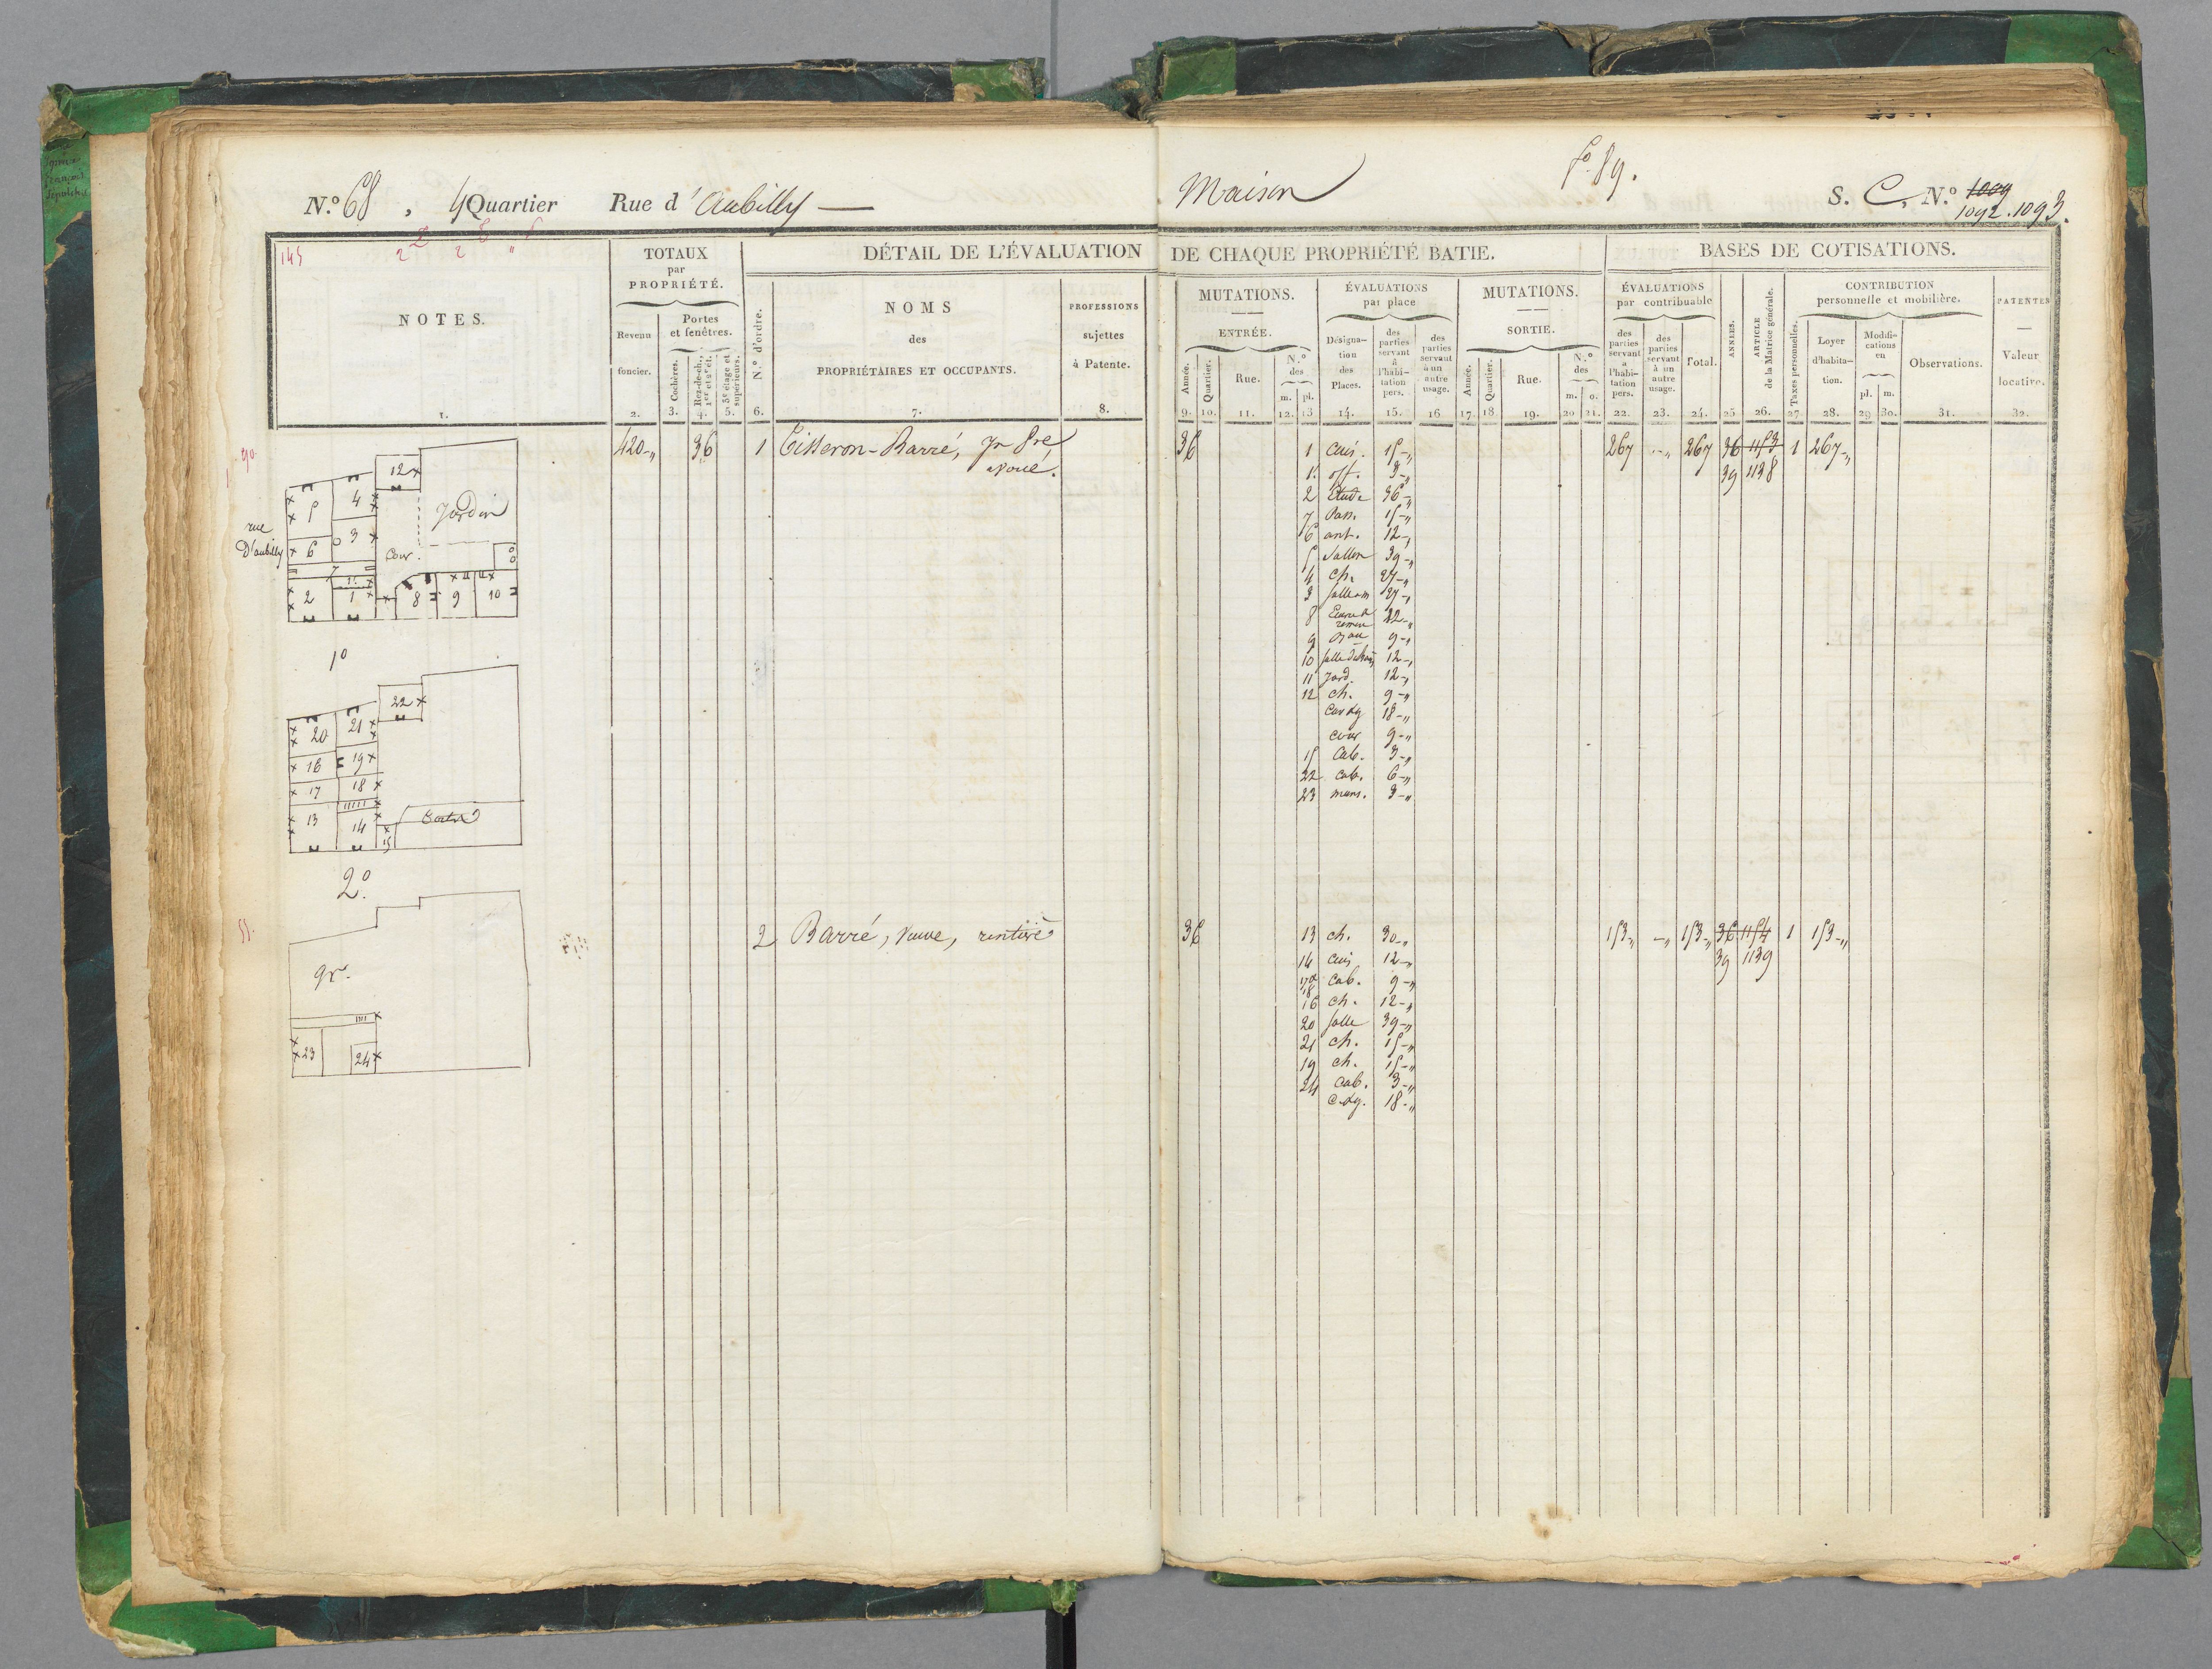 N.º 68, 4 Quartier Rue d'Aubilly —
Maison
fº 89.
S. C, N.º 1009
1092. 1093.
145
NOTES.
1.
TOTAUX
par
PROPRIÉTÉ.
Revenu
foncier.
2.
Portes
et fenêtres.
Cochères.
3.
Rez-de-ch.,
1er et 2e ét.
4.
3e étage et
supérieurs.
5.
DÉTAIL DE L'ÉVALUATION DE CHAQUE PROPRIÉTÉ BATIE.
N.º d'ordre.
6.
NOMS
des
PROPRIÉTAIRES ET OCCUPANTS.
7.
PROFESSIONS
sujettes
à Patente.
8.
MUTATIONS.
ENTRÉE.
Année.
9.
Quartier.
10.
Rue.
11.
N.º
des
m. pl.
12. 13
ÉVALUATIONS
par place
Désigna-
tion
des
Places.
14.
des
parties
servant
à
l'habi-
tation
pers.
15.
des
parties
servant
à un
autre
usage.
16
MUTATIONS.
SORTIE.
Année.
17
Quartier.
18
Rue.
19.
N.º
des
m. o.
20 21.
BASES DE COTISATIONS.
ÉVALUATIONS
par contribuable
des
parties
servant
à
l'habi-
tation
pers.
22.
des
parties
servant
à un
autre
usage.
23.
Total.
24.
ANNÉES.
25
ARTICLE
de la Matrice générale.
26.
CONTRIBUTION
personnelle et mobilière.
Taxes personnelles.
27
Loyer
d'habita-
tion.
28.
Modifi-
cations
en
pl. m.
29 30.
Observations.
31.
PATENTES
Valeur
locative.
32.
90
420-" 36 1 Tisseron-Barré, pre
avoué.
36 1 Cuis. 15-" 267 -" 267 36 1153 1 267-"
39 1138
1. off. 3-"
2 Etude 36-"
7 Pass. 15-"
6 ant. 12-"
5 Sallon 39-"
4 Ch. 27-"
3 Salle am 27-"
8 22-"
9 9-"
10 12-"
11 Jard. 12-"
12 ch. 9-"
18-"
cour 9-"
15 Cab. 3-"
22 cab. 6-"
23 mans. 3-"
rue
D'aubilly
12
5
4
Jardin
6
3
Cour.
7
1.
2
1
8
9
10
1º
22
20
21
16
19
17
18
13
14
15
2º.
gr.
23
24
55.
2 Barré, Veuve, rentière
36 13 ch. 30-" 153-" -" 153-" 36 1154 1 153-"
39 1139
14 cuis 12-"
17 et
18 Cab. 9-"
16 ch. 12-"
20 Salle 39-"
21 ch. 15-"
19 ch. 15-"
24 cab. 3-"
18-"